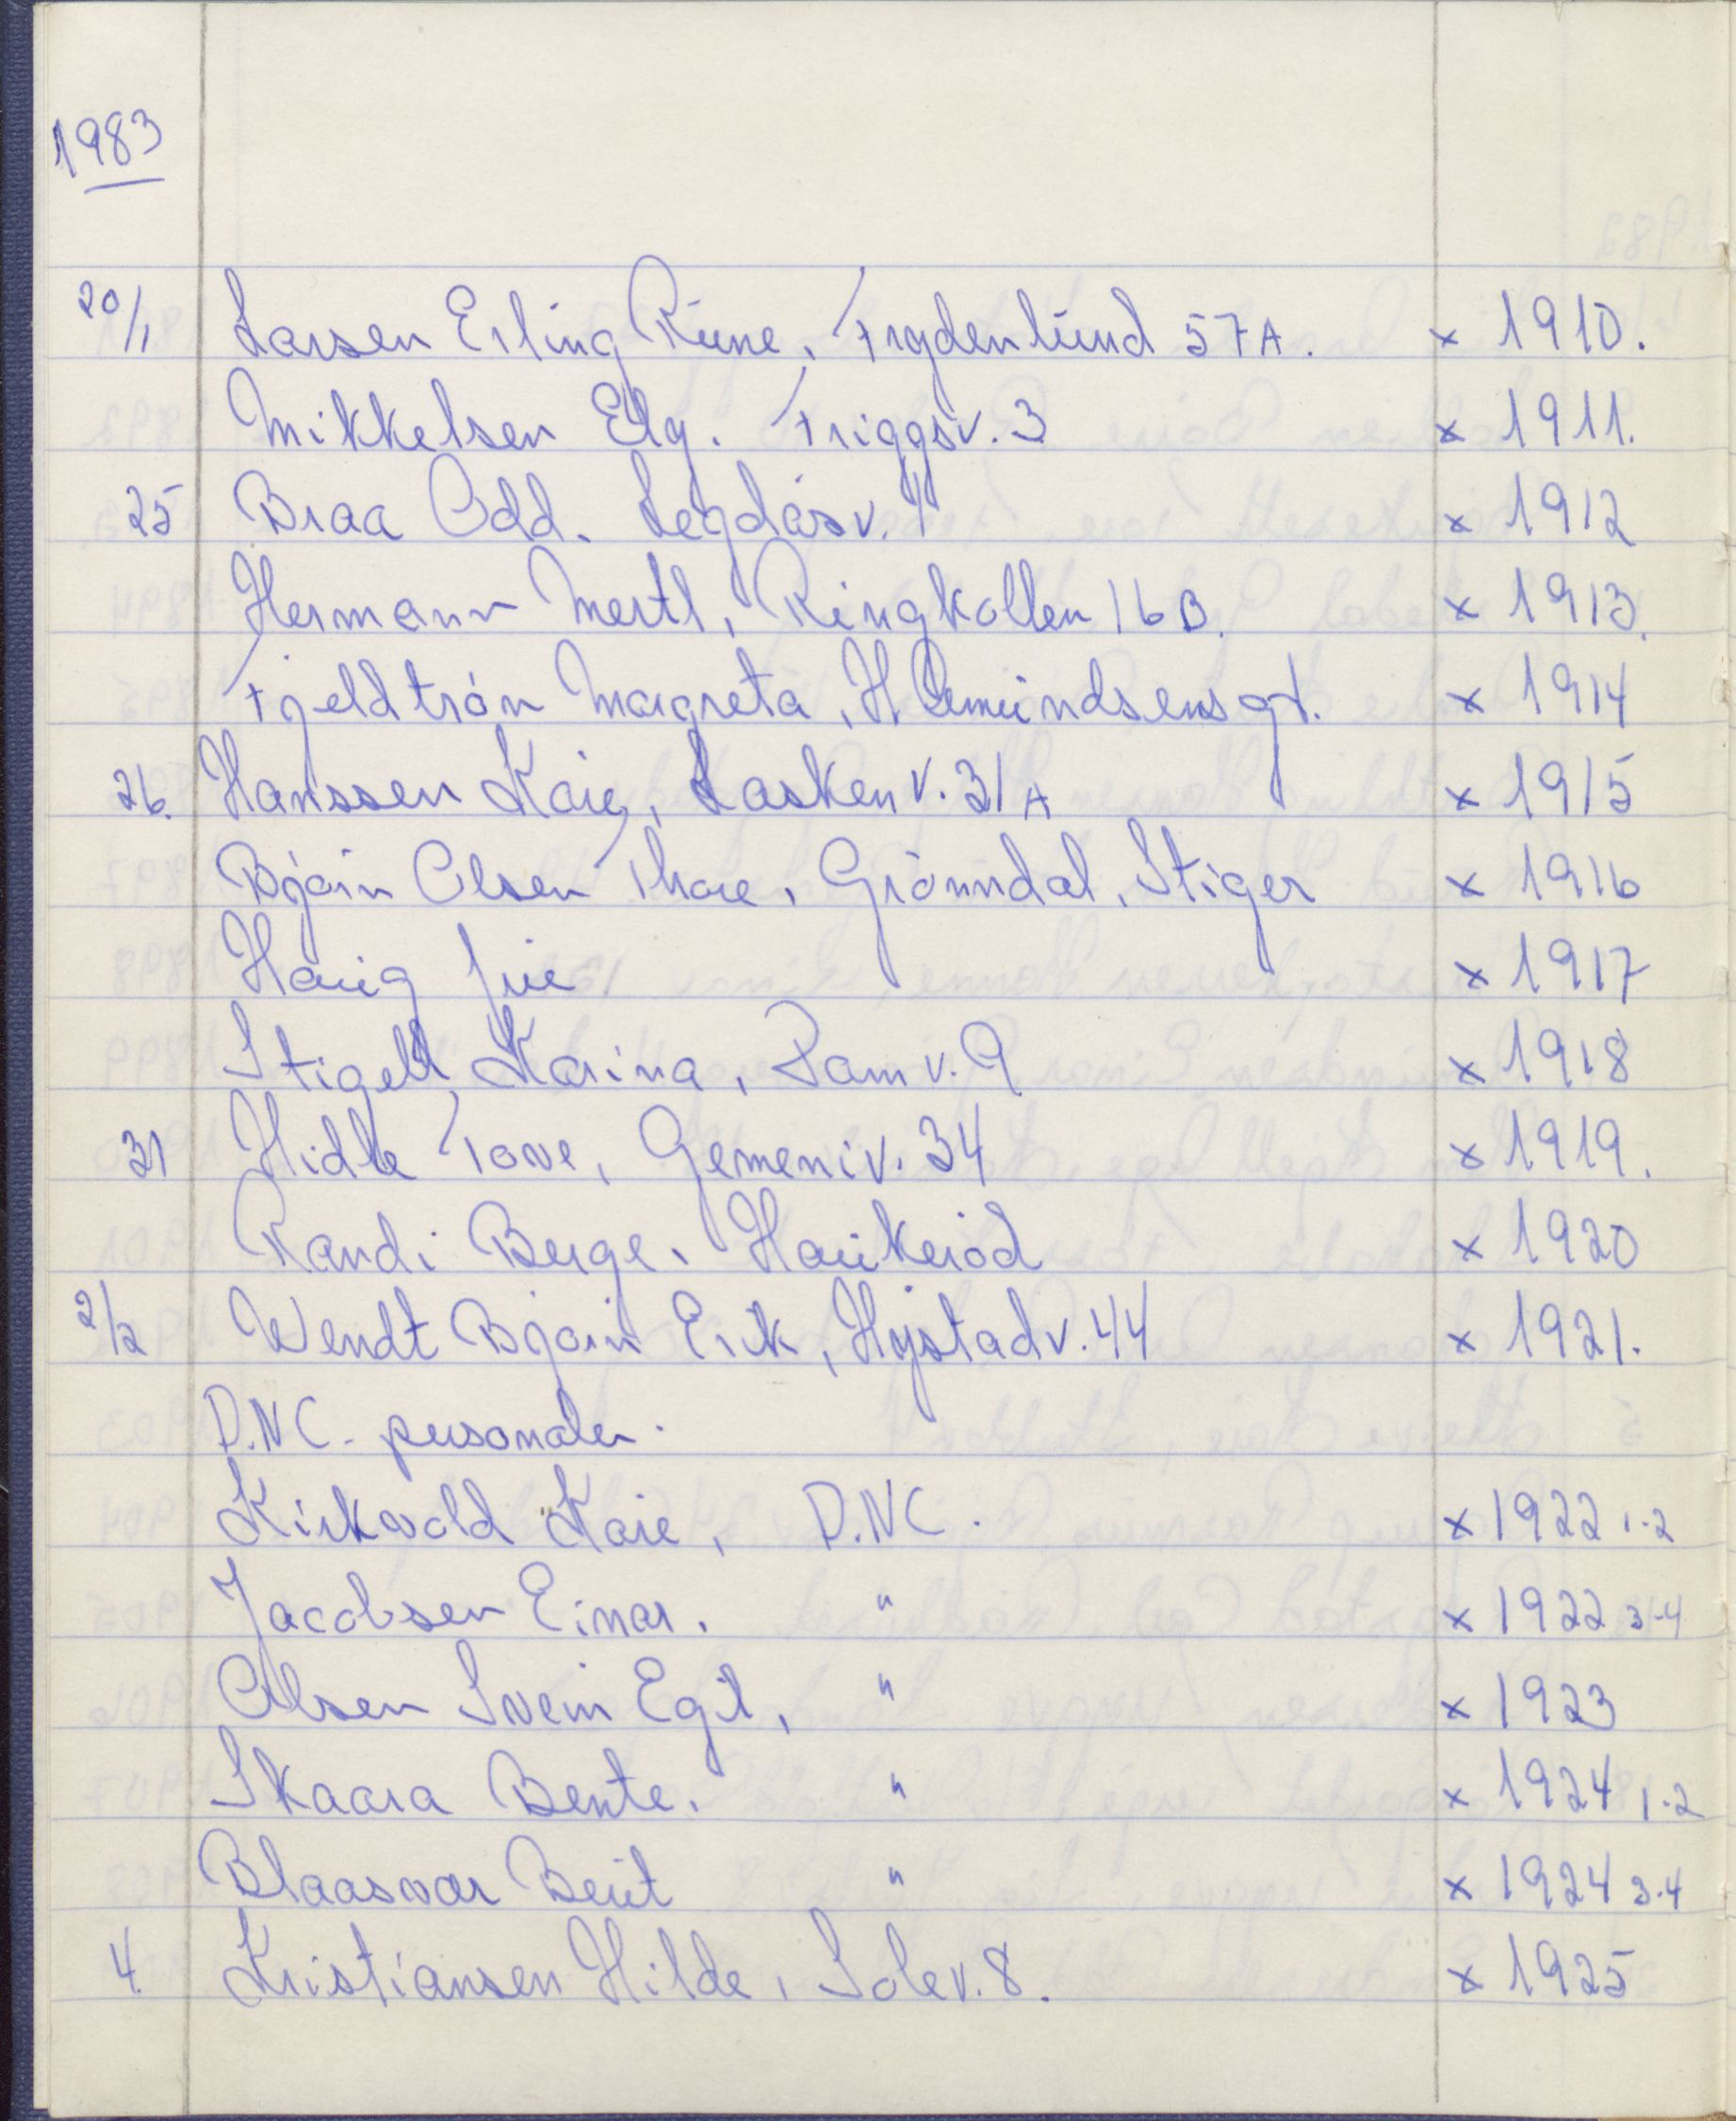 1983
20/1 Larsen Erling Rune, Frydenlund 57A. x 1910.
Mikkelsen Elg. Triggsv. 3 x 1911.
25 Braa Odd. Legdåsv. 4 x 1912
Hermann Mertl, Ringkollen 16 B. x 1913.
Fjeldtrón Margreta, H. Amundsensgt. x 1914
26. Hanssen Kare, Laskenv. 31A x 1915
Bjórn Olsen Thore, Grónndal, Stiger x 1916
Haug x 1917
Stigell Karina, Damv. 9 x 1918
31 Hidle Tove, Gemeniv. 34 x 1919.
Randi Berge, Haukeród x 1920
2/2 Wendt Bjórn Erik, Hystadv. 44 x 1921.
D.N.C. personalen.
Kirkvold Kare, D.N.C. x 1922 1-2
Jacobsen Einar. " x 1922 3-4
Olsen Svein Egil, " x 1923
Skaara Bente. " x 1924 1-2
Blaasvær Berit " x 1924 3-4
4. Kristiansen Hilde, Solev. 8. x 1925